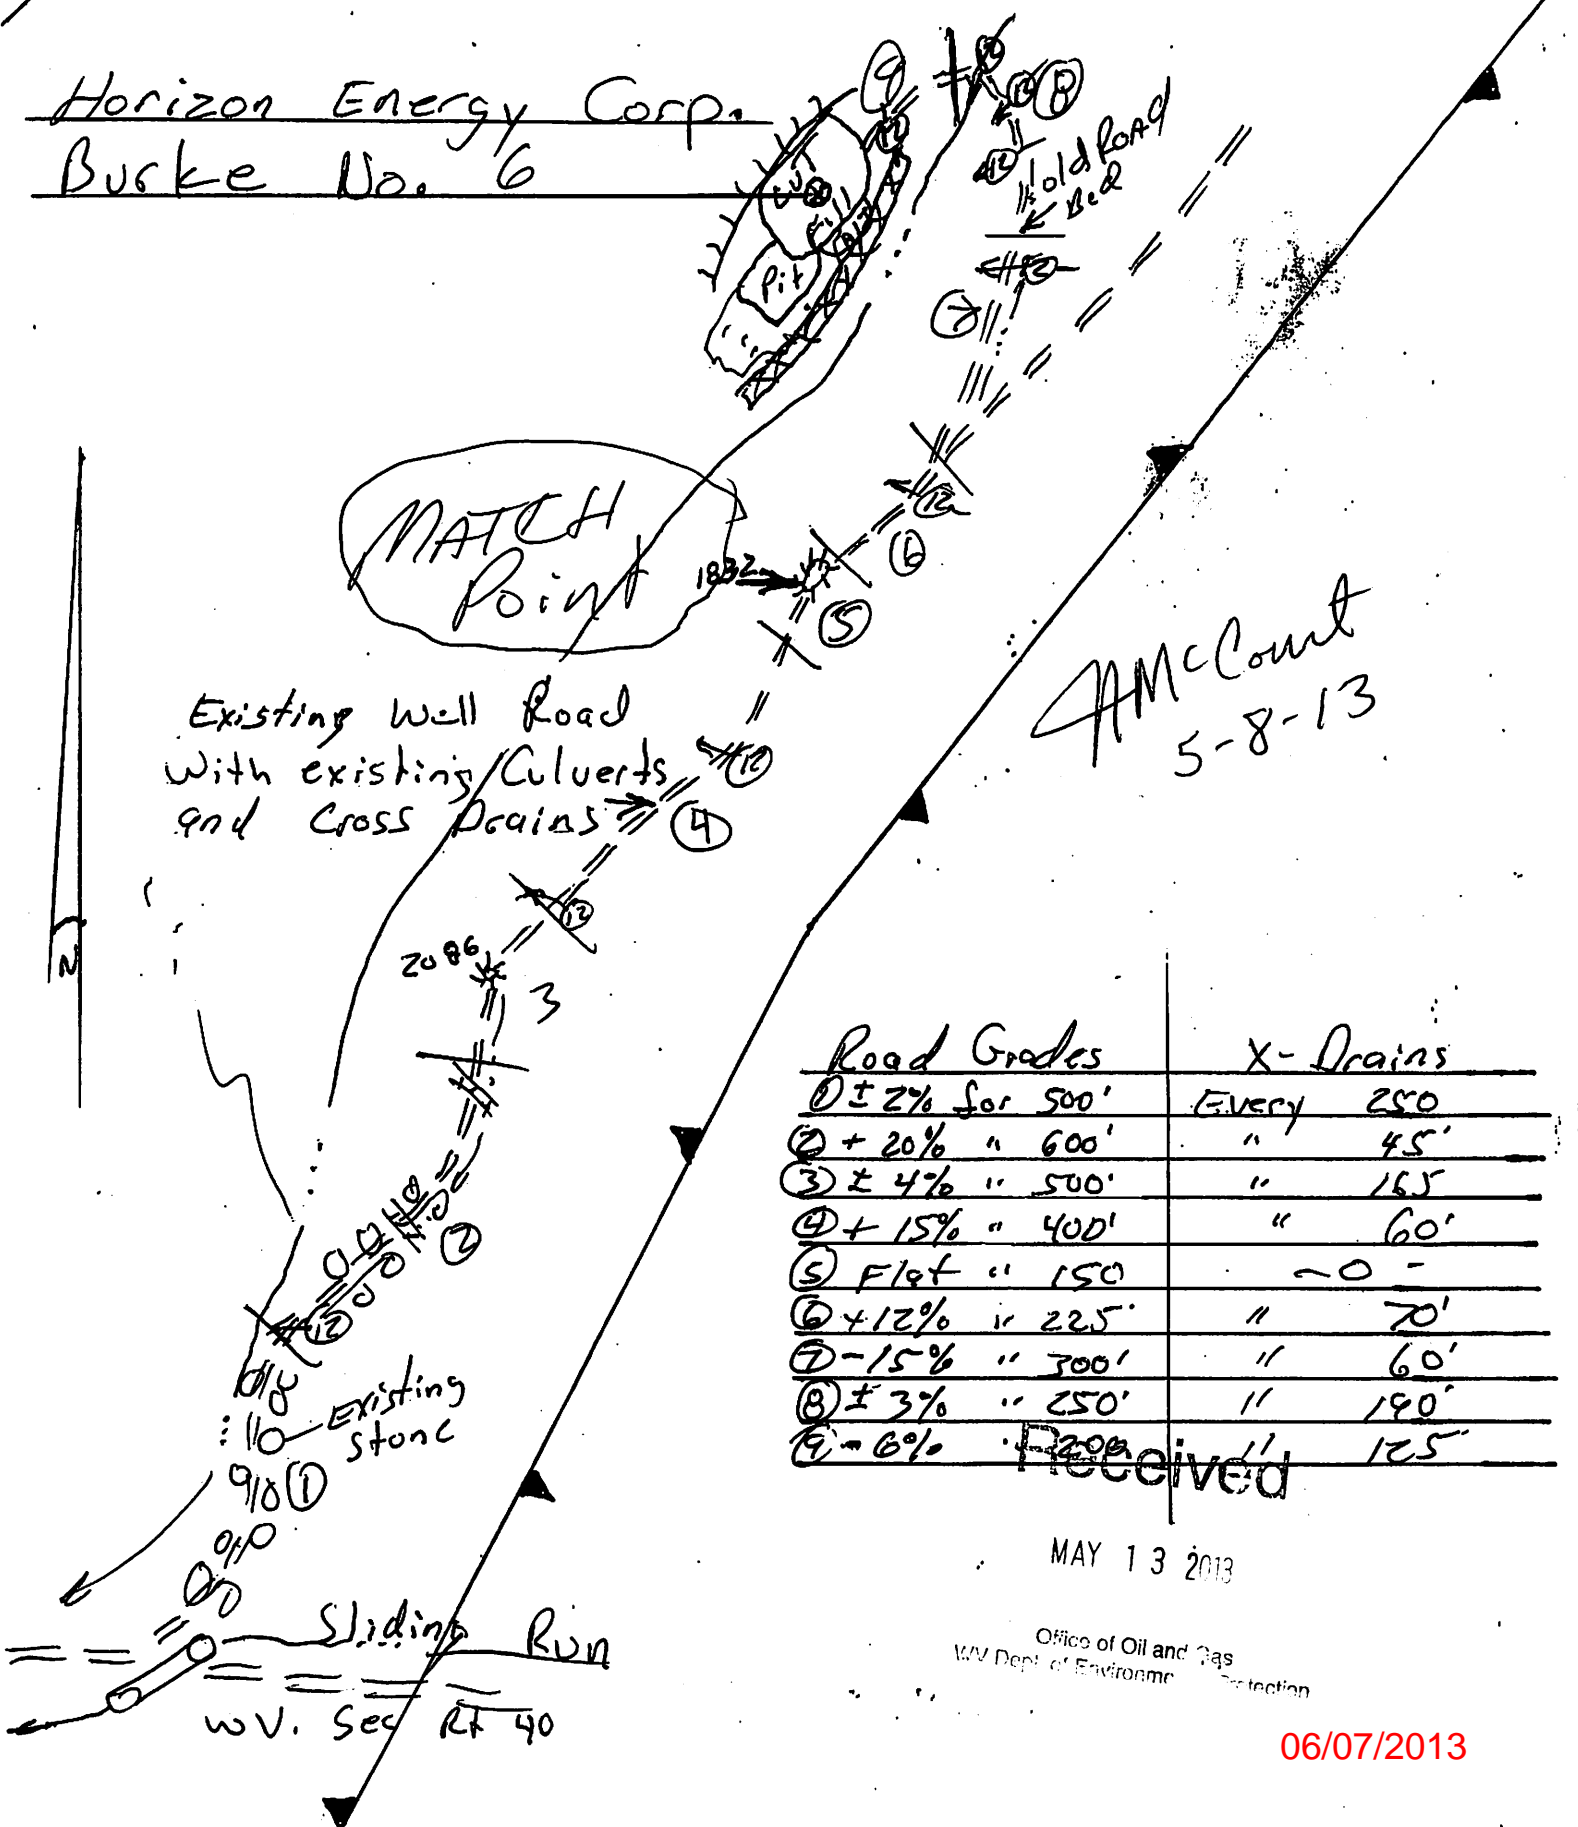 Horizon Energy Corp.
Burke No. 6
9
8
12
12
12
old Road
Bed
Pit
12
7
MATCH
Point
12
6
1832
5
AMcCourt
5-8-13
Existing Well Road
With existing Culverts
and Cross Drains
12
4
12
2086
3
N
2
12
Existing
Stone
1
Road Grades X-Drains
① ± 2% for 500' Every 250
② + 20% " 600' " 45'
③ ± 4% " 500' " 165
④ + 15% " 400' " 60'
⑤ Flat " 150 -0-
⑥ +12% " 225' " 70'
⑦ -15% " 300' " 60'
⑧ ± 3% " 250' " 190'
⑨ - 6% " 200 " 125'
Received
MAY 13 2013
Office of Oil and Gas
WV Dept. of Environme Protection
Sliding Run
WV. Sec Rt 40
06/07/2013